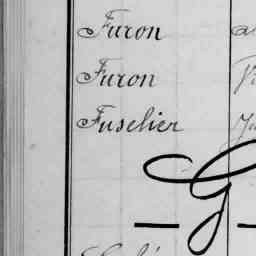 Furon
Furon
Fuselier
G